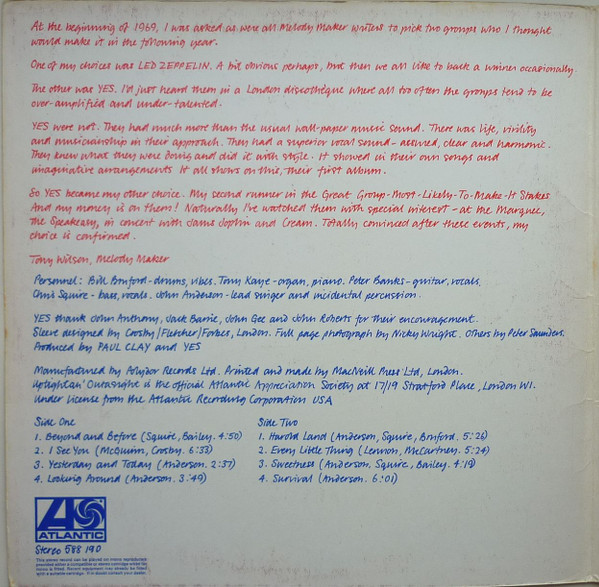 At the beginning of 1969, I was asked as were all Melody Maker writers to pick two groups who I thought
would make it in the following year.
One of my choices was LED ZEPPELIN. A bit obvious perhaps, but then we all like to back a winner occasionally.
The other was YES. I'd just heard them in a London discothèque where all too often the groups tend to be
over-amplified and under-talented.
YES were not. They had much more than the usual wall-paper music sound. There was life, virility
and musicianship in their approach. They had a superior vocal sound - assured, clear and harmonic.
They knew what they were doing and did it with style. It showed in their own songs and
imaginative arrangements It all shows on this, their first album.
So YES became my other choice. My second runner in the Great Group-Most-Likely-To-Make-It Stakes
And my money is on them! Naturally I've watched them with special interest - at the Marquee,
the Speakeasy, in concert with Janis Joplin and Cream. Totally convinced after these events, my
choice is confirmed.
Tony Wilson, Melody Maker
Personnel: Bill Bruford - drums, vibes. Tony Kaye - organ, piano. Peter Banks - guitar, vocals.
Chris Squire - bass, vocals. John Anderson - lead singer and incidental percussion.
YES thank John Anthony, Jack Barrie, John Gee and John Roberts for their encouragement.
Sleeve designed by Crosby/Fletcher/Forbes, London. Full page photograph by Nicky Wright. Others by Peter Saunders.
Produced by PAUL CLAY and YES
Manufactured by Polydor Records Ltd. Printed and made by MacNeill Press Ltd, London.
Uptightan' Outasight is the official Atlantic Appreciation Society at 17/19 Stratford Place, London W1.
Under license from the Atlantic Recording Corporation USA
Side One
1. Beyond and Before (Squire, Bailey. 4:50)
2. I See You (McGuinn, Crosby. 6:33)
3. Yesterday and Today (Anderson. 2:37)
4. Looking Around (Anderson. 3:49)
Side Two
1. Harold Land (Anderson, Squire, Bruford. 5:26)
2. Every Little Thing (Lennon, McCartney. 5:24)
3. Sweetness (Anderson, Squire, Bailey. 4:19)
4. Survival (Anderson. 6:01)
ATLANTIC
Stereo 588 190
This stereo record can be played on mono reproducers
provided either a compatible or stereo cartridge wired for
mono is fitted. Recent equipment may already be fitted
with a suitable cartridge. If in doubt consult your dealer.